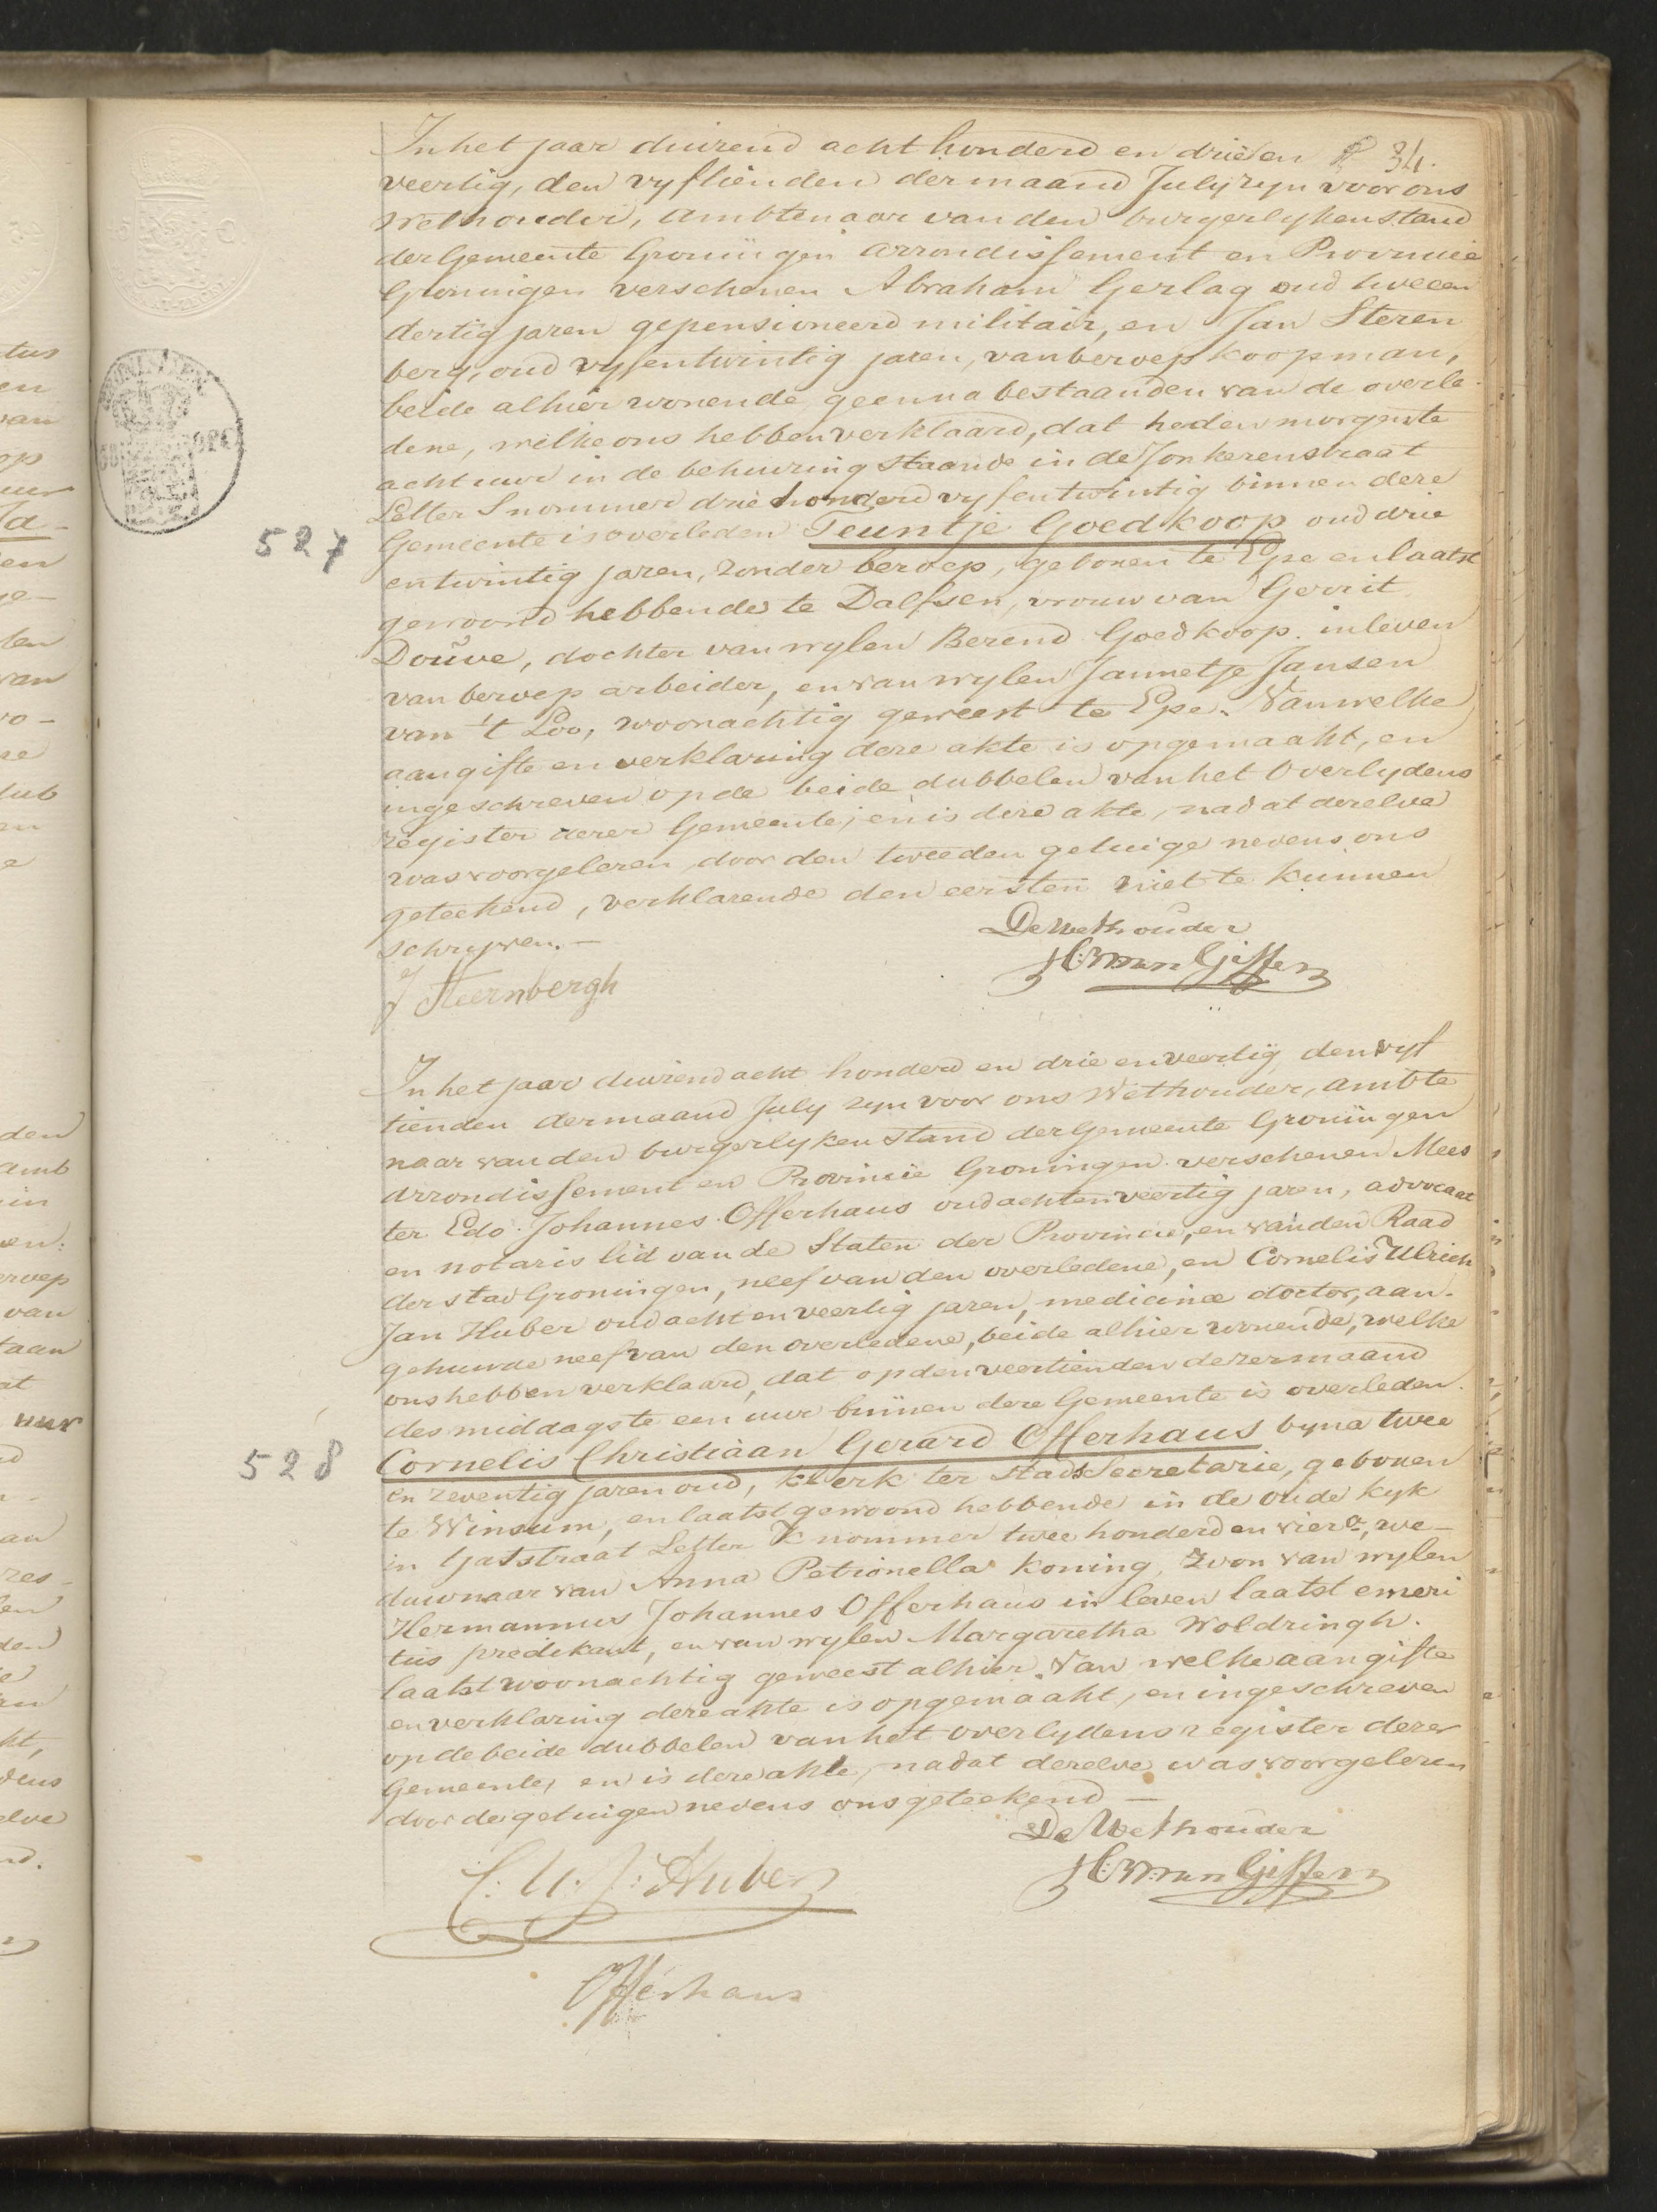 In het jaar duizend acht honderd en drie en 34.
veertig, den vyftienden der maand July zyn voor ons
Wethouder, ambtenaar van den burgerlyken stand
der Gemeente Groningen arrondissement en Provincie
Groningen verschenen Abraham Gerlag oud twee en
dertig jaren gepensioneerd militair, en Jan Steren
berg, oud vyf en twintig jaren, van beroep koopman,
beide alhier wonende geen na bestaanden van de overle-
dene, welke ons hebben verklaard, dat heden morgen te
acht uur in de behuizing staande in de Jonkerenstraat
Letter S nommer drie honderd vyf en twintig binnen deze
527 Gemeente is overleden Teuntje Goedkoop oud drie
en twintig jaren, zonder beroep, geboren te Epe en laatst
gewoond hebbende te Dalfsen, vrouw van Gerrit
Douve, dochter van wylen Berend Goedkoop. in leven
van beroep arbeider, en van wylen Jannetje Jansen
van 't Loo, woonachtig geweest te Epe. Van welke
aangifte en verklaring deze akte is opgemaakt, en
ingeschreven op de beide dubbelen van het Overlydens
register dezer Gemeente; en is deze akte, nadat dezelve
was voorgelezen door den tweeden getuige nevens ons
geteekend, verklarende den eersten niet te kunnen
schryven. —
De Wethouder
J Steernbergh
van Giffen
In het jaar duizend acht honderd en drie en veertig, den vyf
tienden der maand July zyn voor ons Wethouder, ambte
naar van den burgerlyken stand der Gemeente Groningen
arrondissement en Provincie Groningen verschenen Mees
ter Edo Johannes Offerhaus oud acht en veertig jaren, advocaat
en notaris lid van de Staten der Provincie, en van den Raad
der stad Groningen, neef van den overledene, en Cornelis Ulrich
Jan Huber oud acht en veertig jaren, medicinæ doctor, aan-
gehuwde neef van den overledene, beide alhier wonende, welke
ons hebben verklaard, dat op den veertienden dezer maand
des middags te een uur binnen deze Gemeente is overleden
528 Cornelis Christiaan Gerard Offerhaus byna twee
en zeventig jaren oud, klerk ter stads Secretarie, geboren
te Winsum, en laatst gewoond hebbende in de oude kyk
in Gatstraat Letter K nommer twee honderd en vier a, we-
duwnaar van Anna Petronella Koning, zoon van wylen
Hermannus Johannes Offerhaus in leven laatst emeri
tus predikant, en van wylen Margaretha Woldringh.
laatst woonachtig geweest alhier. Van welke aangifte
en verklaring deze akte is opgemaakt, en ingeschreven
op de beide dubbelen van het overlydens register dezer
Gemeente, en is deze akte, nadat dezelve was voorgelezen
door de getuigen nevens ons geteekend —
De Wethouder
C. U. J. Huber
van Giffen
Offerhaus